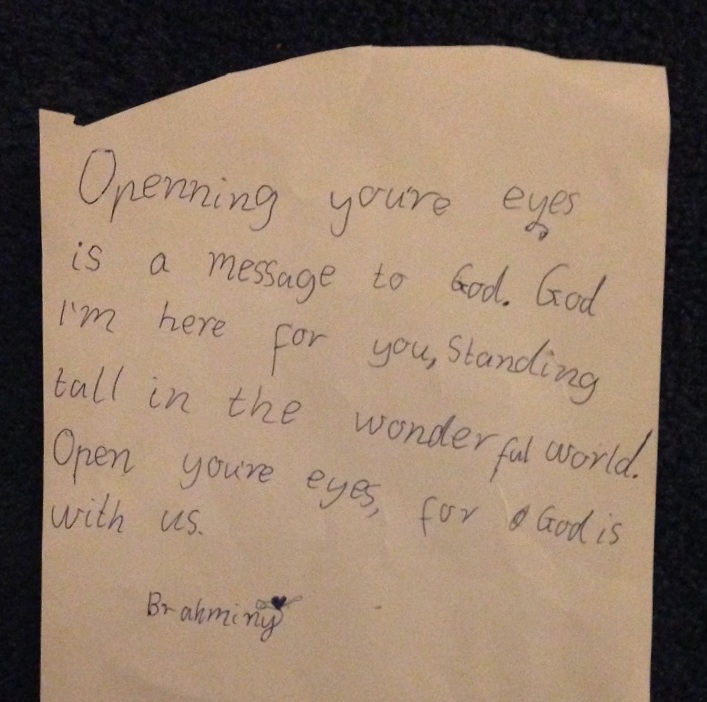 Openning youre eyes
is a message to God. God
I'm here for you, Standing
tall in the wonderful world.
Open youre eyes, for God is
with us.
Brahminy